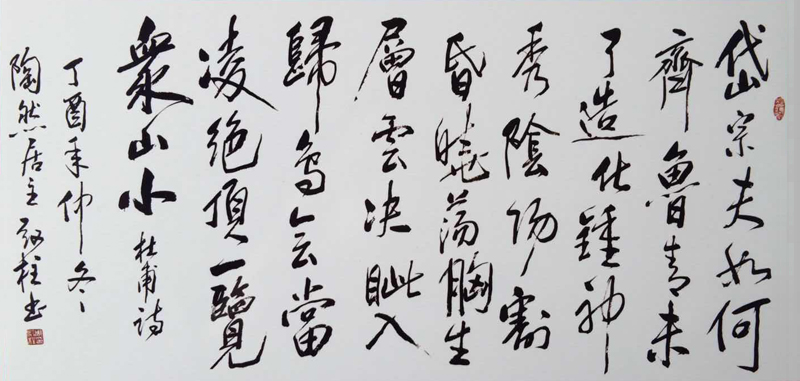 岱宗夫如何
齊魯青未
了造化鍾神
秀陰陽割
昏曉蕩胸生
層雲決眦入
歸鳥會當
凌絕頂一覽
衆山小 杜甫詩
丁酉年仲冬
陶然居主 書